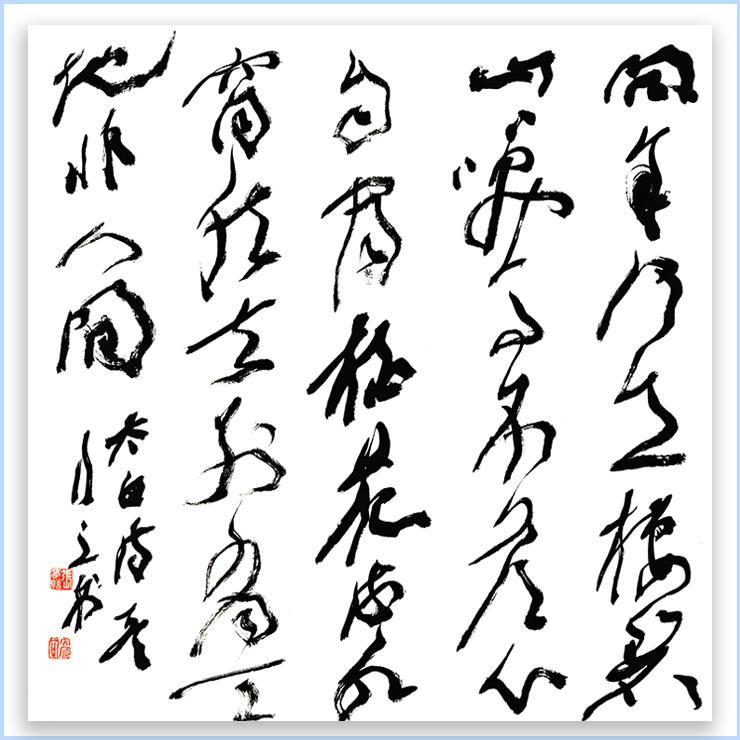 问余何意栖碧
山笑而不答心
自闲桃花流水
窅然去别有天
地非人间
太白诗
书